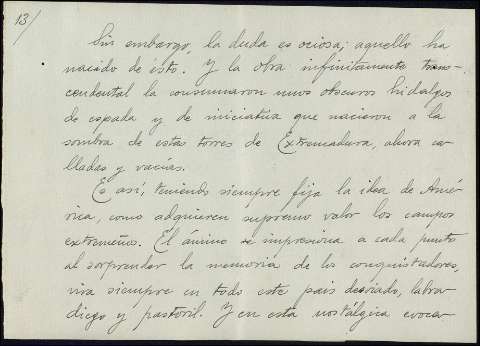 13/
Sin embargo, la duda es ociosa; aquello ha
nacido de esto. Y la obra infinitamente trans-
cendental la consumaron unos obscuros hidalgos
de espada y de iniciativa que nacieron a la
sombra de estas torres de Extremadura, ahora ca-
lladas y vacías.
Es así, teniendo siempre fija la idea de Amé-
rica, como adquieren supremo valor los campos
extremeños. El ánimo se impresiona a cada punto
al sorprender la memoria de los conquistadores,
viva siempre en todo este país desviado, labra-
diego y pastoril. Y en esta nostálgica evoca-